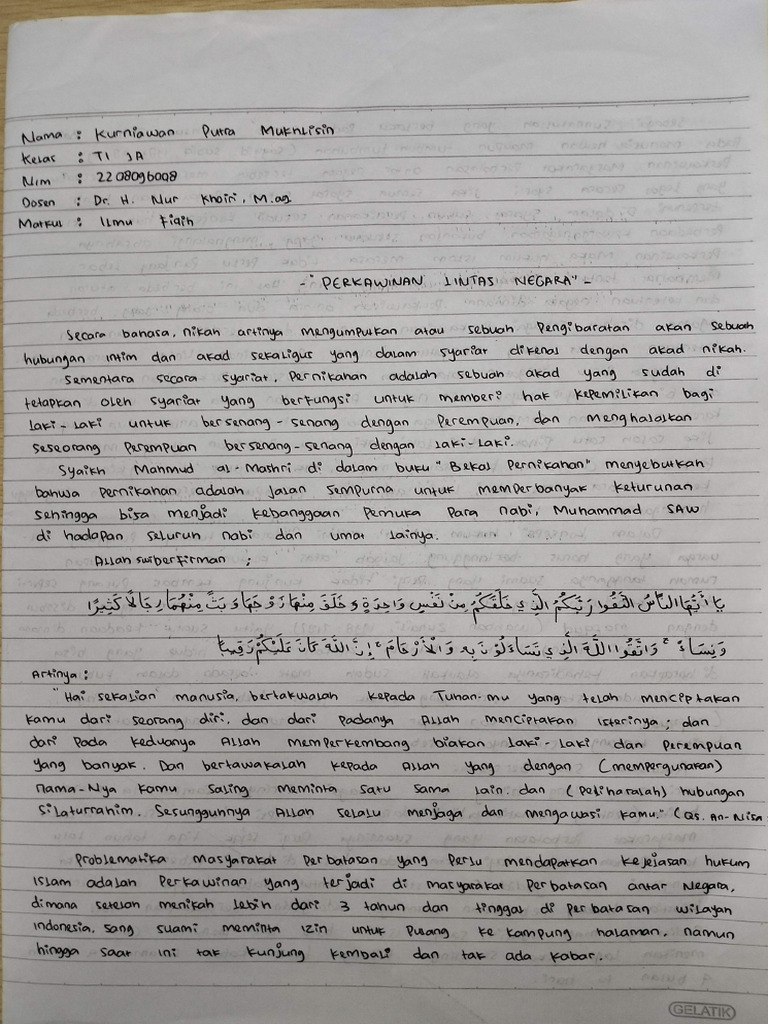 Nama : Kurniawan Putra Mukhlisin
Kelas : TI 1A
Nim : 2208096098
Dosen : Dr. H. Nur Khoiri, M.ag
Matkul : Ilmu Fiqih
-"PERKAWINAN LINTAS NEGARA"-
Secara bahasa, nikah artinya mengumpulkan atau sebuah Pengibaratan akan sebuah
hubungan intim dan akad sekaligus yang dalam syariat dikenal dengan akad nikah.
Sementara secara syariat, Pernikahan adalah sebuah akad yang sudah di
tetapkan oleh syariat yang berfungsi untuk memberi hak kepemilikan bagi
laki-laki untuk bersenang-senang dengan Perempuan, dan menghalalkan
seseorang Perempuan bersenang-senang dengan laki-laki.
Syaikh Mahmud al-Mashri di dalam buku "Bekal Pernikahan" menyebutkan
bahwa Pernikahan adalah jalan sempurna untuk memperbanyak keturunan
sehingga bisa menjadi kebanggaan Pemuka Para nabi, Muhammad SAW
di hadapan seluruh nabi dan umat lainya.
Allah swt berfirman :
يَا أَيُّهَا النَّاسُ اتَّقُوا رَبَّكُمُ الَّذِي خَلَقَكُمْ مِنْ نَفْسٍ وَاحِدَةٍ وَخَلَقَ مِنْهَا زَوْجَهَا وَبَثَّ مِنْهُمَا رِجَالًا كَثِيرًا
وَنِسَاءً ۚ وَاتَّقُوا اللَّهَ الَّذِي تَسَاءَلُونَ بِهِ وَالْأَرْحَامَ ۚ إِنَّ اللَّهَ كَانَ عَلَيْكُمْ رَقِيبًا
Artinya :
"Hai sekalian manusia, bertakwalah kepada Tuhan-mu yang telah menciptakan
kamu dari seorang diri, dan dari padanya Allah menciptakan isterinya; dan
dari Pada keduanya Allah memperkembang biakan laki-laki dan Perempuan
yang banyak. Dan bertawakalah kepada Allah yang dengan (mempergunakan)
nama-Nya kamu saling meminta satu sama lain. dan (Peliharalah) hubungan
silaturrahim. Sesungguhnya Allah selalu menjaga dan mengawasi kamu." (Qs. An-Nisa
Problematika masyarakat Perbatasan yang Perlu mendapatkan kejejasan hukum
Islam adalah Perkawinan yang terjadi di masyarakat Perbatasan antar Negara,
dimana setelah menikah lebih dari 3 tahun dan tinggal di perbatasan wilayah
indonesia. sang suami meminta izin untuk Pulang ke kampung halaman, namun
hingga saat ini tak kunjung kembali dan tak ada kabar.
GELATIK